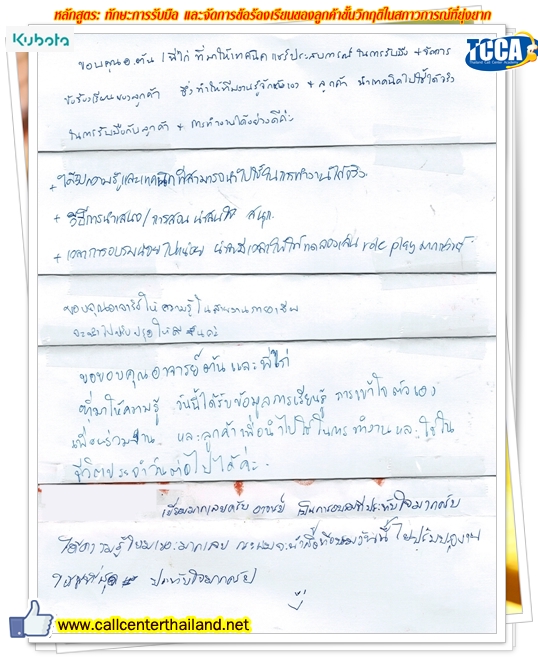 หลักสูตร: ทักษะการรับมือ และจัดการข้อร้องเรียนของลูกค้าขั้นวิกฤติในสภาวการณ์ที่ยุ่งยาก
Kubota
TCCA
Thailand Call Center Academy
ขอบคุณ อ.ต้น / พี่ไก่ ที่มาให้เทคนิค แชร์ประสบการณ์ ในการรับมือ + จัดการ
ข้อร้องเรียนของลูกค้า ซึ่งทำให้ทีมงานรู้จักตนเอง + ลูกค้า นำเทคนิคไปใช้ได้จริง
ในการรับมือกับลูกค้า + การทำงานได้อย่างดีค่ะ
+ ได้รับความรู้และเทคนิคที่สามารถนำไปใช้ในการทำงานได้จริง
+ วิธีการนำเสนอ / การสอน น่าสนใจ สนุก
+ เวลาการอบรมน้อยไปหน่อย น่าจะมีเวลาให้ได้ทดลองเล่น role play มากกว่านี้
ขอบคุณอาจารย์ให้ความรู้ในสายงานอาชีพ
จะนำไปปรับปรุงให้ดีขึ้นค่ะ
ขอขอบคุณอาจารย์ต้นและพี่ไก่
ที่มาให้ความรู้ วันนี้ได้รับข้อมูลการเรียนรู้ การเข้าใจตัวเอง
เพื่อนร่วมงาน และลูกค้าเพื่อนำไปใช้ในการทำงานและใช้ใน
ชีวิตประจำวันต่อไปได้ค่ะ
เยี่ยมมากเลยครับ อาจารย์ เป็นการอบรมที่ประทับใจมากครับ
ได้ความรู้ใหม่เยอะมากเลย ผมจะนำสิ่งที่อบรมวันนี้ ไปปรับปรุงงาน
ให้ดีที่สุด ประทับใจมากครับ
www.callcenterthailand.net